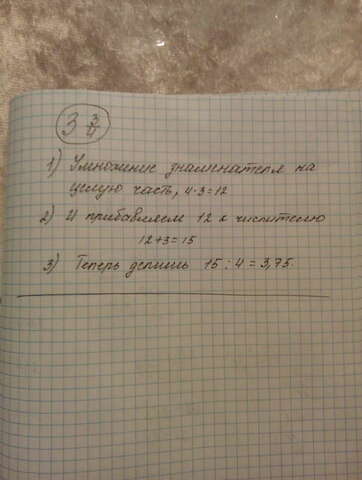 3 3/4
1) Умножение знаменателя на
целую часть, 4·3=12
2) И прибавляем 12 к числителю
12+3=15
3) Теперь делишь 15 : 4 = 3,75.